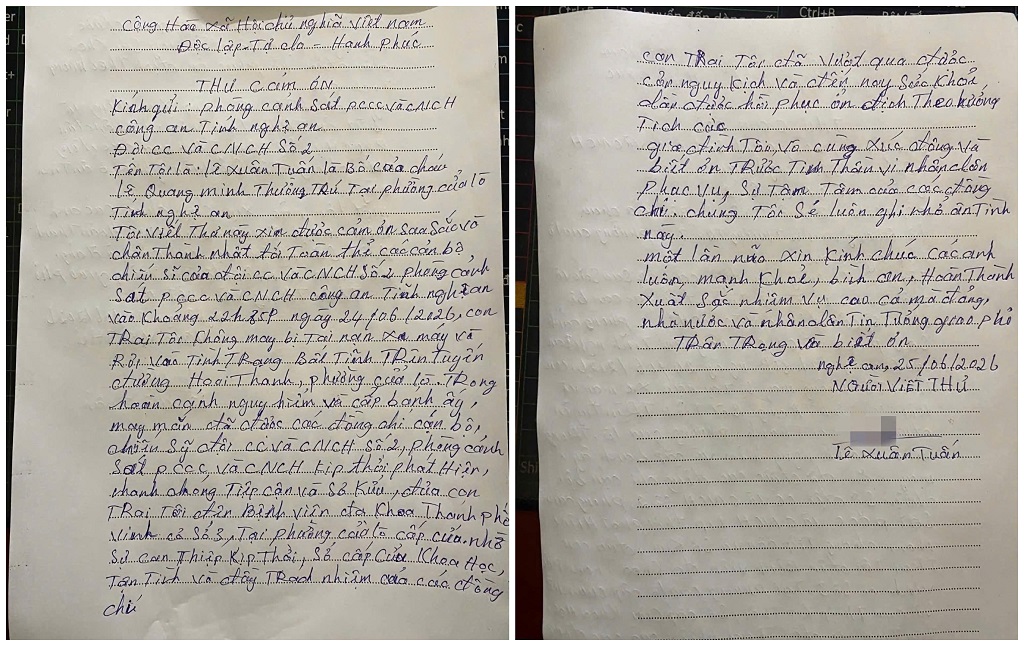 Cộng Hòa Xã Hội chủ nghĩa Việt nam
Độc lập - Tự do - Hạnh phúc
THƯ CẢM ƠN
Kính gửi: phòng cảnh sát pccc và CNCH
công an Tỉnh nghệ an
Đội cc và CNCH Số 2
Tên Tôi là: Lê Xuân Tuấn là Bố của cháu
Lê Quang minh Thường Trú Tại phường cửa lò
Tỉnh nghệ an
Tôi viết Thư này xin được cảm ơn sâu sắc và
chân Thành nhất tới Toàn thể các cán bộ
chiến sĩ của đội cc và CNCH Số 2 phòng cảnh
sát pccc và CNCH công an Tỉnh nghệ an
vào khoảng 22h35p ngày 24/06/2026, con
TRai Tôi không may bị Tai nạn xe máy và
Rơi vào Tình TRạng Bất Tỉnh TRên Tuyến
đường Hoài Thanh, phường cửa lò. TRong
hoàn cảnh nguy hiểm và cấp bách ấy,
may mắn đã được các đồng chí cán bộ,
chiến sỹ đội cc và CNCH số 2, phòng cảnh
sát pccc và CNCH kịp thời phát Hiện,
nhanh chóng Tiếp cận và Sơ Kứu, đưa con
TRai Tôi đến Bệnh viện đa Khoa Thành phố
vinh cơ Số 3, Tại phường cửa lò cấp cứu. nhờ
Sự can Thiệp Kịp Thời, Sơ cấp Cứu Khoa Học,
Tận Tình và đầy TRách nhiệm của các đồng
chí
con TRai Tôi đã vượt qua được
cơn nguy kịch và đến nay Sức Khỏe
dần được hồi phục ổn định Theo hướng
Tích cực
gia đình Tôi, vô cùng xúc động và
biết ơn TRước Tinh Thần vì nhân dân
phục vụ, Sự Tậm Tâm của các đồng
chí. chúng Tôi Sẽ luôn ghi nhớ ân Tình
này.
một lần nữa xin kính chúc các anh
luôn, mạnh Khoẻ, bình an, Hoàn Thành
Xuất Sắc nhiệm vụ cao cả mà đảng,
nhà nước và nhân dân Tin Tưởng giao phó
TRân TRọng và biết ơn
nghệ an, 25/06/2026
NGƯỜI VIẾT THƯ
Lê Xuân Tuấn